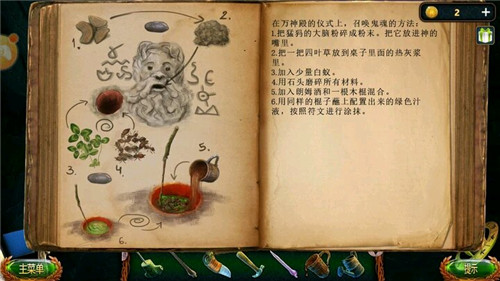 2
1.
2.
3.
4.
5.
6.
在万神殿的仪式上，召唤鬼魂的方法：
1.把猛犸的大脑粉碎成粉末。把它放进神的
嘴里。
2.把一把四叶草放到桌子里面的热灰浆
里。
3.加入少量白蚁。
4.用石头磨碎所有材料。
5.加入朗姆酒和一根木棍混合。
6.用同样的棍子蘸上配置出来的绿色汁
液，按照符文进行涂抹。
主菜单
提示